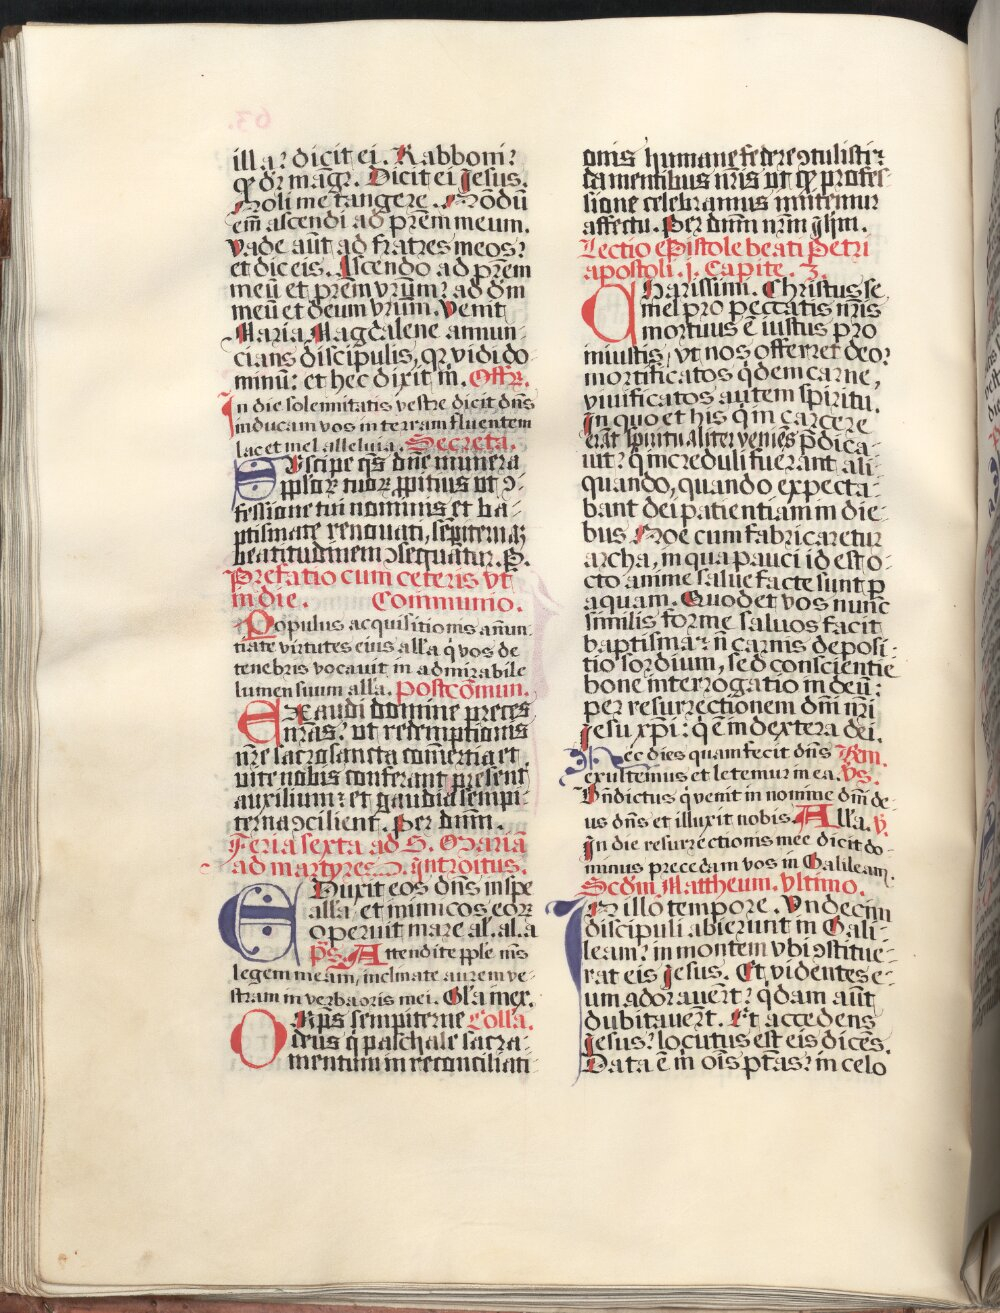 illa? dicit ei. Rabboni?
qđ dr̄ magr̄. Dicit ei Jesus.
Noli me tangere. Nōdū
em̄ ascendi ad p̄rem meum.
Vade aūt ad fratres meos?
et dic eis. Ascendo ad p̄rem
meū et p̄rem vr̄um? ad dm̄
meū et deum vr̄um. Venit
Maria Magdalene annun-
cians discipulis, qr vidi do-
minū: et hec dixit m̄. Offr̄.
In die solennitatis vestre dicit dn̄s
inducam vos in terram fluentem
lac et mel alleluia. Secreta.
Suscipe qs̄ dn̄e munera
pplorꝝ tuorꝝ ꝓpitius ut ↄ-
fessione tui nominis et ba-
ptismate renouati, sēpiternaꝫ
beatitudinem ↄsequātur. P.
Prefatio cum ceteris vt
in die. Communio.
Populus acquisitionis an̄un-
tiate virtutes eius all'a q̇ vos de
tenebris vocauit in admirabile
lumen suum all'a. Postcōmun.
Exaudi domine preces
nr̄as? ut redemptionis
nr̄e sacrosancta comērtia et
vite nobis conferant presentꝭ
auxilium? et gaudia sempi-
terna ↄcilient. Per dnm̄.
Feria sexta ad S. Mariā
ad martyres. Introitus.
Eduxit eos dn̄s in spe
all'a: et inimicos eorꝝ
operuit mare al. al. a
p̄s. Attendite pple m̄s
legem meam, inclinate aurem ve-
stram in verba oris mei. Gl'a in ex.
Omp̄s sempiterne Coll'a.
deus q̇ paschale sacra-
mentum in reconciliati-
onis humane federe ↄtulisti?
da mentibus nr̄is ut qđ profes-
sione celebramus imitemur
affectu. Per dnm̄ nr̄m Jhm̄.
Lectio epistole beati Petri
apostoli. j. Capite. 3.
Charissimi. Christus se-
mel pro peccatis nr̄is
mortuus ē iustus pro
iniustis, vt nos offerret deo?
mortificatos q̇dem carne,
viuificatos autem spiritu.
In quo et his q̇ in carcere
erāt spiritualiter veniēs p̄dica-
uit? q̇ increduli fuerant ali-
quando, quando expecta-
bant dei patientiam in die-
bus Noe cum fabricaretur
archa, in qua pauci id est o-
cto anime salue facte sunt ꝑ
aquam. Quod et vos nunc
similis forme saluos facit
baptisma? n̄ carnis deposi-
tio sordium, sed conscientie
bone interrogatio in deū:
per resurrectionem dn̄i nr̄i
Jesu xp̄i: q̇ ē in dextera dei.
Hec dies quam fecit dn̄s Rm̄.
exultemus et letemur in ea. Vs.
Bn̄dictus q̇ venit in nomine dn̄i de-
us dn̄s et illuxit nobis. All'a. v.
In die resurrectionis mee dicit do-
minus precedam vos in Galileam.
Scđm Mattheum. Vltimo.
In illo tempore. Vndecim
discipuli abierunt in Gali-
leam? in montem vbi ↄstitue-
rat eis Jesus. Et videntes e-
um adorauert̄? q̇dam aūt
dubitauert̄. Et accedens
Jesus? locutus est eis dicēs.
Data ē m̄ oīs ptās? in celo